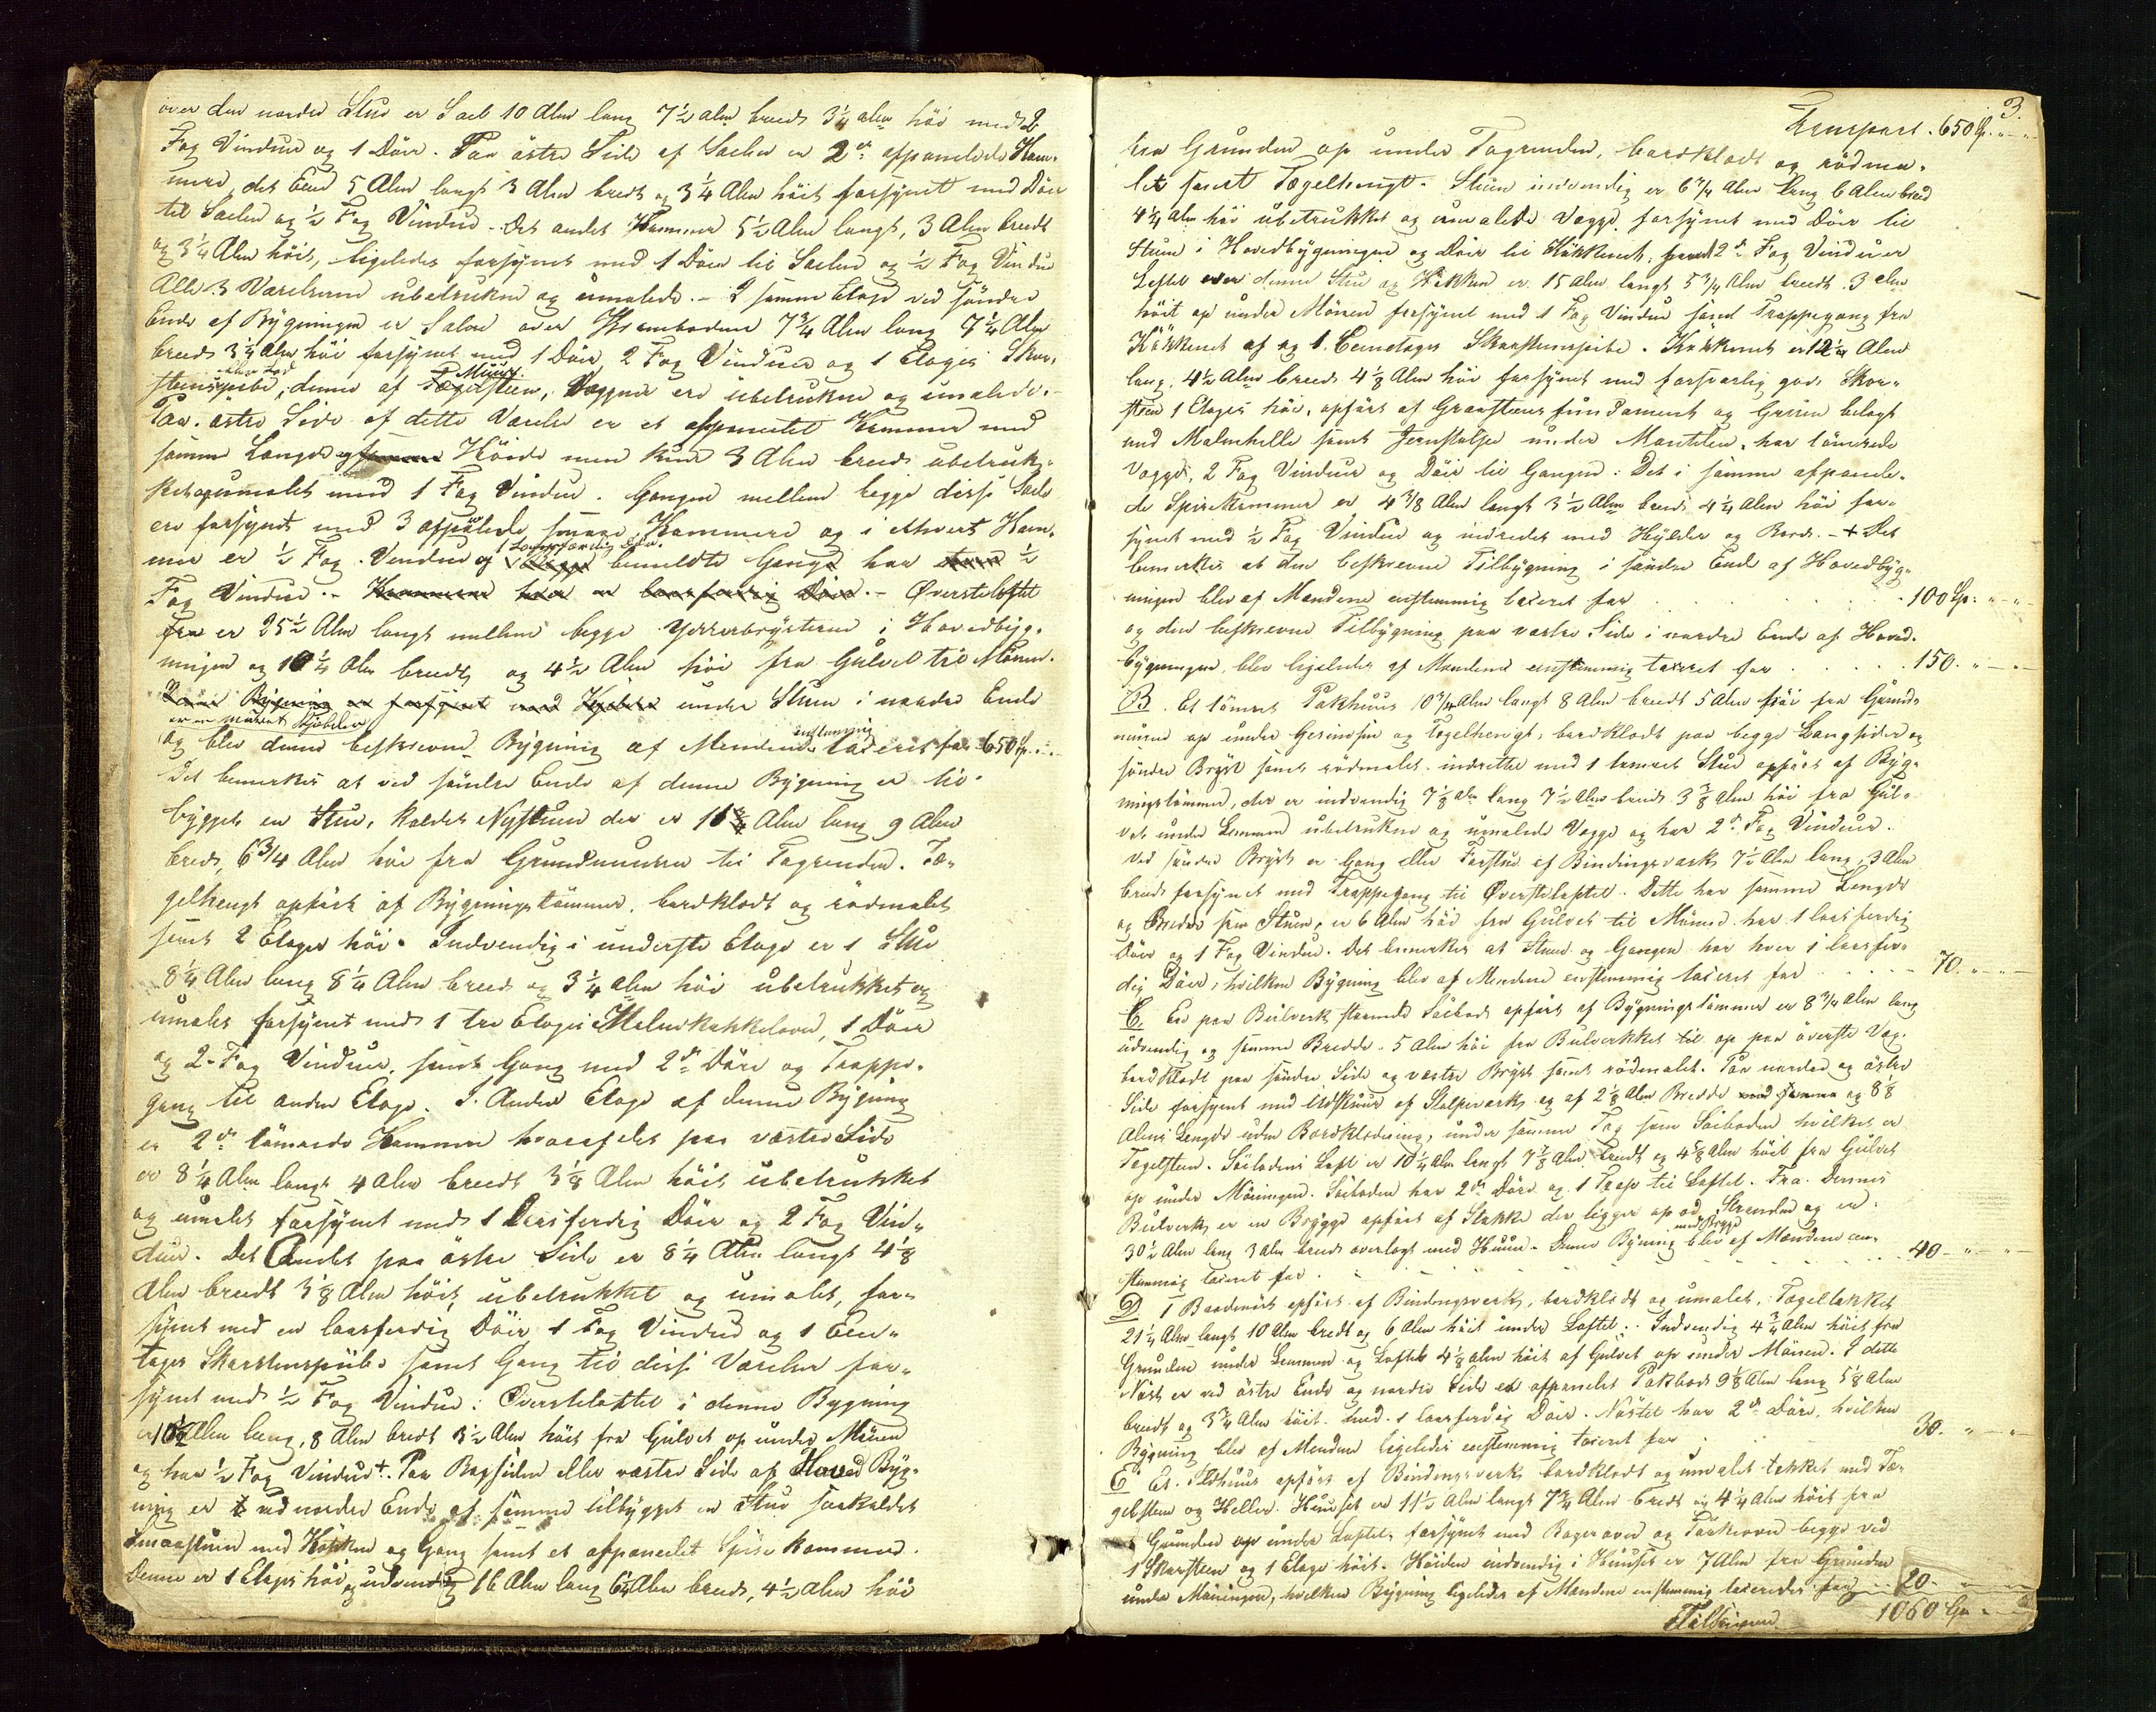 over den nordre Stue er Sael 10 Alen lang 7½ alen breed 3¼ alen höi med 2
Fag Vinduer og 1 Döir. Paa östre Side af Saelen er 2de afpanelede Kam-
mere, det Eene 5 Alen langt 3 Alen bredt og 3¼ Alen höit forsynet med Döir
til Saelen og ½ Fag Vindue. Det andet Kammer 5½ Alen langt, 3 Alen breedt
og 3¼ Alen höit, ligeledes forsynet med 1 Döir til Saelen og ½ Fag Vindue
Alle 3 Værelserne ubetrukne og umalede. – I samme Etage ved söndre
Ende af Bygningen er Salen over Kramboden 7¾ Alen lang 7¼ Alen
breed 3¼ Alen höi forsynet med 1 Döir, 2 Fag Vinduer og 1 Etages Skor-
steenspibe, denne af Muur Tægelsteen, Væggene ere ubetrukne og umalede.
Paa östre Side af dette Værelse er et afpanelet Kammer med
samme Længde og Höide men kun 3 Alen breed ubetruk-
ket og umalet med 1 Fag Vindue. Gangen mellem begge disse Sale
ere forsynet med 3 afpanelede smaae Kammere og i ethvert Kam-
mer er ½ Fag Vindue og 1 laasfærdig Döir. bemeldte Gange har ½
Fag Vindue. – Kammerne hver en laasfærdig Döir. – Øversteloftet
er 25½ Alen langt mellem begge Yderbrysterne i Hovedbyg-
ningen og 10½ Alen breedt og 4½ Alen höi fra Gulvet til Mönen.
Denne Bygning er forsynet med Kjelder under Stuen i nordre Ende
er en muret Kjelder
og blev denne beskrevne Bygning af Mændene enstemmig taxeret for 650 Sp. " "
Det bemærkes at ved söndre Ende af denne Bygning er til-
bygget en Stue, kaldet Nystuen der er 11¾ Alen lang 9 Alen
breed, 6¾ Alen höi fra Grundmuuren til Tagrenden. Tæ-
gelhengt opfört af Bygningstömmer, bordklædt og rödmalet
samt 2 Etager höi. Indvendig i underste Etage er 1 Stue
8¼ Alen lang 8¼ Alen breed og 3¼ alen höi ubetrukket og
umalet forsynet med 1 tre Etages Malmkakkelovn, 1 Döir
og 2 Fag Vinduer, samt Gang med 2de Döre og Trappe-
gang til anden Etage. I Anden Etage af denne Bygning
er 2de tömrede Kammere hvoraf det paa vestre Side
er 8¼ Alen langt 4 Alen breedt 3⅛ Alen höit ubetrukket
og umalet forsynet med 1 laasferdig Döir og 2 Fag Vin-
duer. Det Andet paa östre Side er 8¼ Alen langt 4⅛
Alen breedt 3⅛ Alen höit, ubetrukket og umalet, for-
synet med en laasferdig Döir 1 Fag Vindue og 1 Een-
tages Skorstenspibe samt Gang til disse Værelser for-
synet med ½ Fag Vindue. Øversteloftet i denne Bygning
er 10½ Alen lang, 8 Alen bredt 3½ Alen höit fra Gulvet op under Mönen
og har ½ Fag Vindue +. Paa Bagsiden eller vestre Side af Hoved Byg-
ning er ved nordre Ende af samme tilbygget en Stue saakaldet
Smaastuen med Kökken og Gang samt et afpanelet Spise kammer.
Denne er 1 Etages höi og udvendig 16 Alen lang 6¾ Alen breed, 4½ alen höi
3.
Transport. 650 Sp. " "
fra Grunden op under Tagrenden, bordklædt og rödma-
let samt Tægelhengt. Stuen indvendig er 6¾ Alen lang 6 Alen bred
4¼ Alen höi ubetrukket og umalede Vægge, forsynet med Döir til
Stuen i Hovedbygningen og Döir til Kökkenet, samt 2de Fag Vinduer
Loftet over denne Stue og Kökken er 15 Alen langt 5¾ Alen breedt 3 alen
höit op under Mönen forsynet med 1 Fag Vindue samt Trappegang fra
Kökkenet af og 1 Eenetages Skorsteenspibe. Kökkenet er 12¼ Alen
lang, 4½ Alen breed 4⅛ Alen höi forsynet med forsvarlig god Skor-
steen 1 Etages höi, opfört af Graasteens fundament og Gruen belagt
med Malmhelle samt Jernstolpe under Mantelen, har tömrede
Vægge, 2 Fag Vinduer og Döir til Gangen. Det i samme afpanele-
de Spisekammer er 4⅜ Alen langt 3½ Alen breed 4¼ Alen höi for-
synet med ½ Fag Vindue og indredet med Hylder og Bord. – + Det
bemerkes at den beskrevne Tilbygning i söndre Ende af Hovedbyg-
ningen blev af Mændene enstemmig taxeret for . . . . . 100 Sp. " "
og den beskrevne Tilbygning paa vestre Side i nordre Ende af Hoved-
bygningen blev ligeledes af Mændene enstemmig taxeret for . . . . 150. " "
B. Et tömret Pakhuus 10¾ Alen langt 8 Alen breedt 5 Alen höi fra Grund-
muuren op under Gesimsen og Tægelhengt, bordklædt paa begge Langsider og
söndre Bryst samt rödmalet. indrettet med 1 tömret Stue opfört af Byg-
ningstömmer, der er indvendig 7⅛ Alen lang 7½ Alen breed 3⅜ Alen höi fra Gul-
vet under Lemmen ubetrukne og umalede Vægge og har 2de Fag Vinduer.
Ved söndre Bryst er Gang eller Forstue af Bindingsværk 7½ Alen lang, 3 Alen
breed forsynet med Trappegang til Øversteloftet. Dette har samme Længde
og Brede som Stuen, er 6 Alen höi fra Gulvet til Mönen har 1 laasferdig
Döir og 1 Fag Vindue. Det bemerkes at Stuen og Gangen har hver 1 laasfer-
dig Döir, hvilken Bygning blev af Mændene enstemmig taxeret for . . . . 70. " "
C. En paa Bulverk staaende Söebod opfört af Bygningstömmer er 8¾ Alen lang
udvendig og samme Bredde. 5 Alen höi fra Bulverkket til op paa överste Væg.
bordklædt paa söndre Side og vestre Bryst samt rödmalet. Paa nordre og östre
Side forsynet med Udskuur af Stolpeværk og af 2⅛ Alen Bredde og 8⅛
Alens Længde uden Bordklædning, under samme Tag som Söeboden hvilket er
Tegelsteen. Söebodens Loft er 10¼ Alen langt 7⅞ Alen breedt og 4⅝ Alen höit fra Gulvet
op under Möningen. Söeboden har 2de Döre og 1 Trap til Loftet. Fra dennes
Bulverk er en Brygge opfört af Stokke der ligger op ad Stranden og er
30½ Alen lang 3 alen breed overlagt med Huun. Denne Bygning med Brygge blev af Mændene een-
stemmig taxeret for . . . . . . . 40 " "
D. 1 Baadenöst opfört af Bindingsverk, bordklædt og umalet, Tægeltækket
21¼ Alen langt 10 Alen bredt og 6 Alen höit under Loftet. Indvendig 4¾ Alen höit fra
Grunden under Lemmen og Loftet 4⅛ alen höit af Gulvet op under Mönen. I dette
Nöst er ved östre Ende og nordre Side en afpanelet Pakbod 9⅛ Alen lang 5⅛ Alen
breedt og 3¾ Alen höit. med 1 laasferdig Döir. Nöstet har 2de Döre, hvilken
Bygning blev af Mændene ligeledes enstemmig taxeret for . . . 30. " "
E. Et Ildhuus opfört af Bindingsverk bordklædt og umalet tækket med Tæ-
gelsteen og Heller. Huuset er 11½ Alen langt 7¾ Alen bredt og 4¼ Alen höit fra
Grunden op under Loftet, forsynet med Bagerovn og Törkeovn begge ved
1 Skorsteen og 1 Etage höit. Höiden indvendig i Huuset er 7 Alen fra Grunden
under Möningen, hvilken Bygning ligeledes af Mændene enstemmig taxeredes for . . 20. " "
Tilsammen 1060 Sp. " "